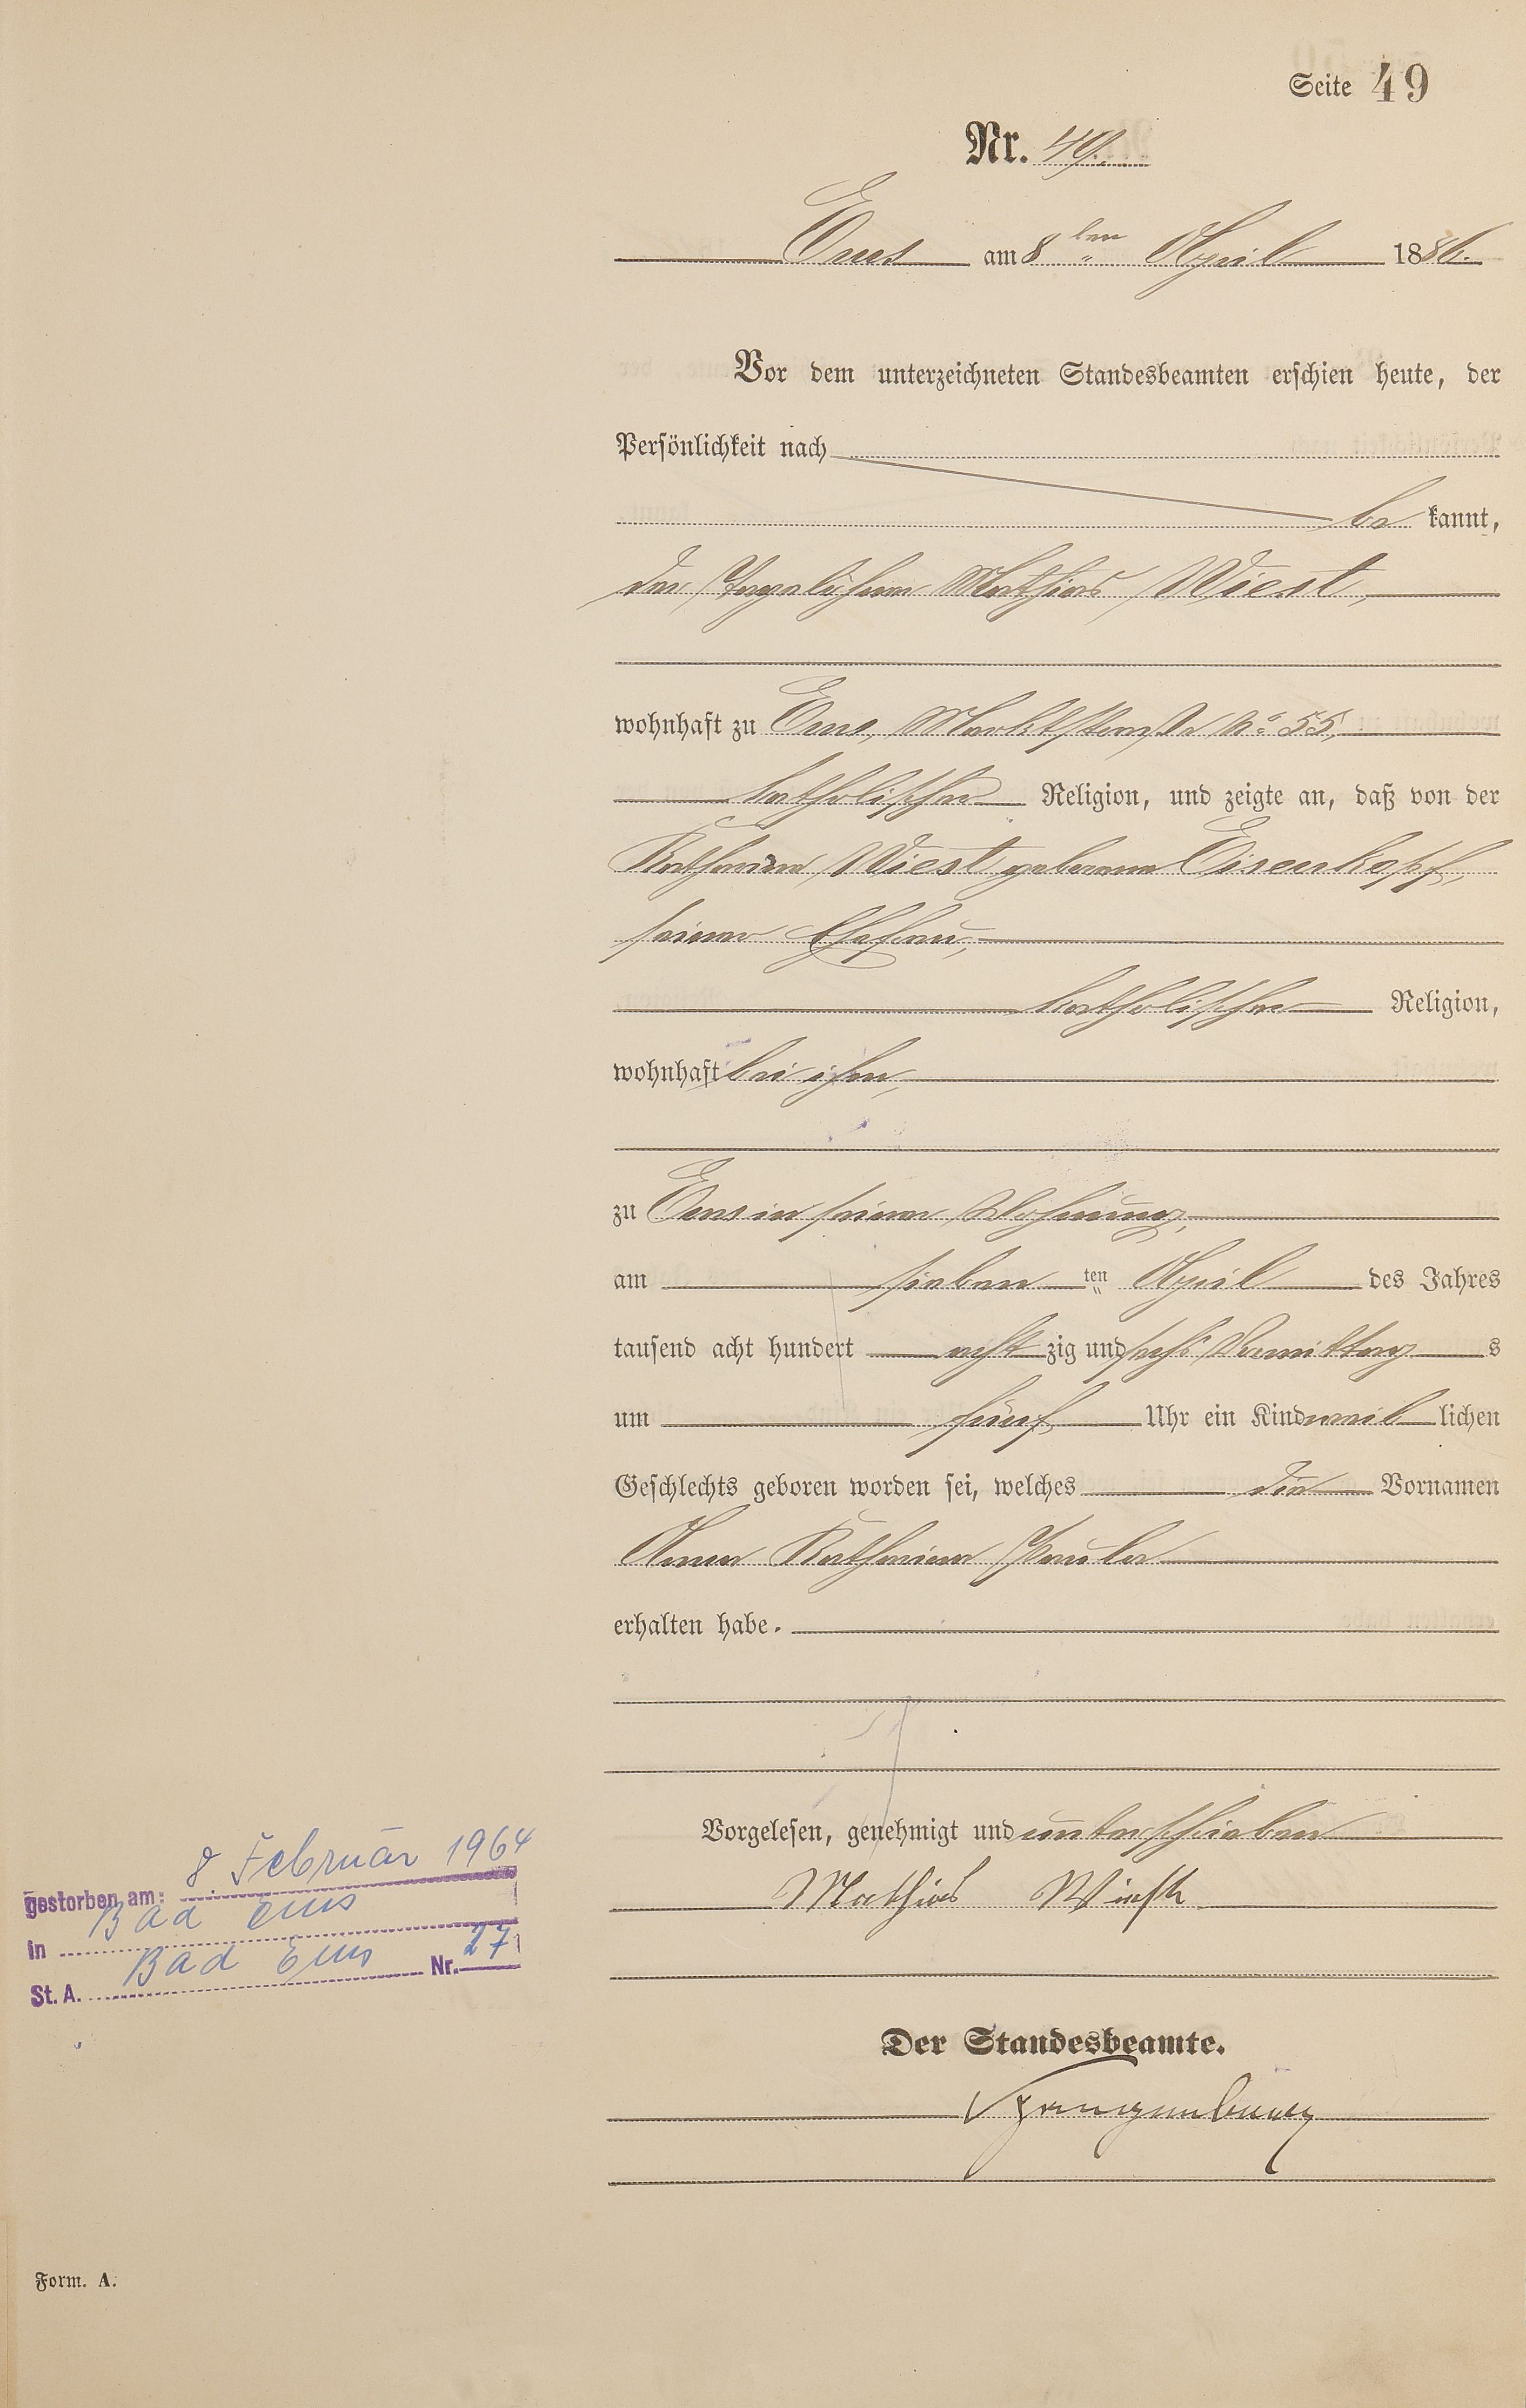 Seite 49
Nr. 49.
Ems am 8ten April 1886.
Vor dem unterzeichneten Standesbeamten erschien heute, der
Persönlichkeit nach
be kannt,
der Tagelöhner Mathias Wiest,
wohnhaft zu Ems, Marktstraße No 55,
katholischer Religion, und zeigte an, daß von der
Katharina Wiest geborene Eisenkopf,
seiner Ehefrau,
katholischer Religion,
wohnhaft bei ihm,
zu Ems in seiner Wohnung,
am sieben ten April des Jahres
tausend acht hundert acht zig und sechs Vormittag s
um fünf Uhr ein Kind weib lichen
Geschlechts geboren worden sei, welches die Vornamen
Anna Katharina Paula
erhalten habe.
Vorgelesen, genehmigt und unterschrieben
Mathias Wiest
Der Standesbeamte.
Spangenberg
gestorben am: 8 Februar 1964
in Bad Ems
St. A. Bad Ems Nr. 27
Form. A.